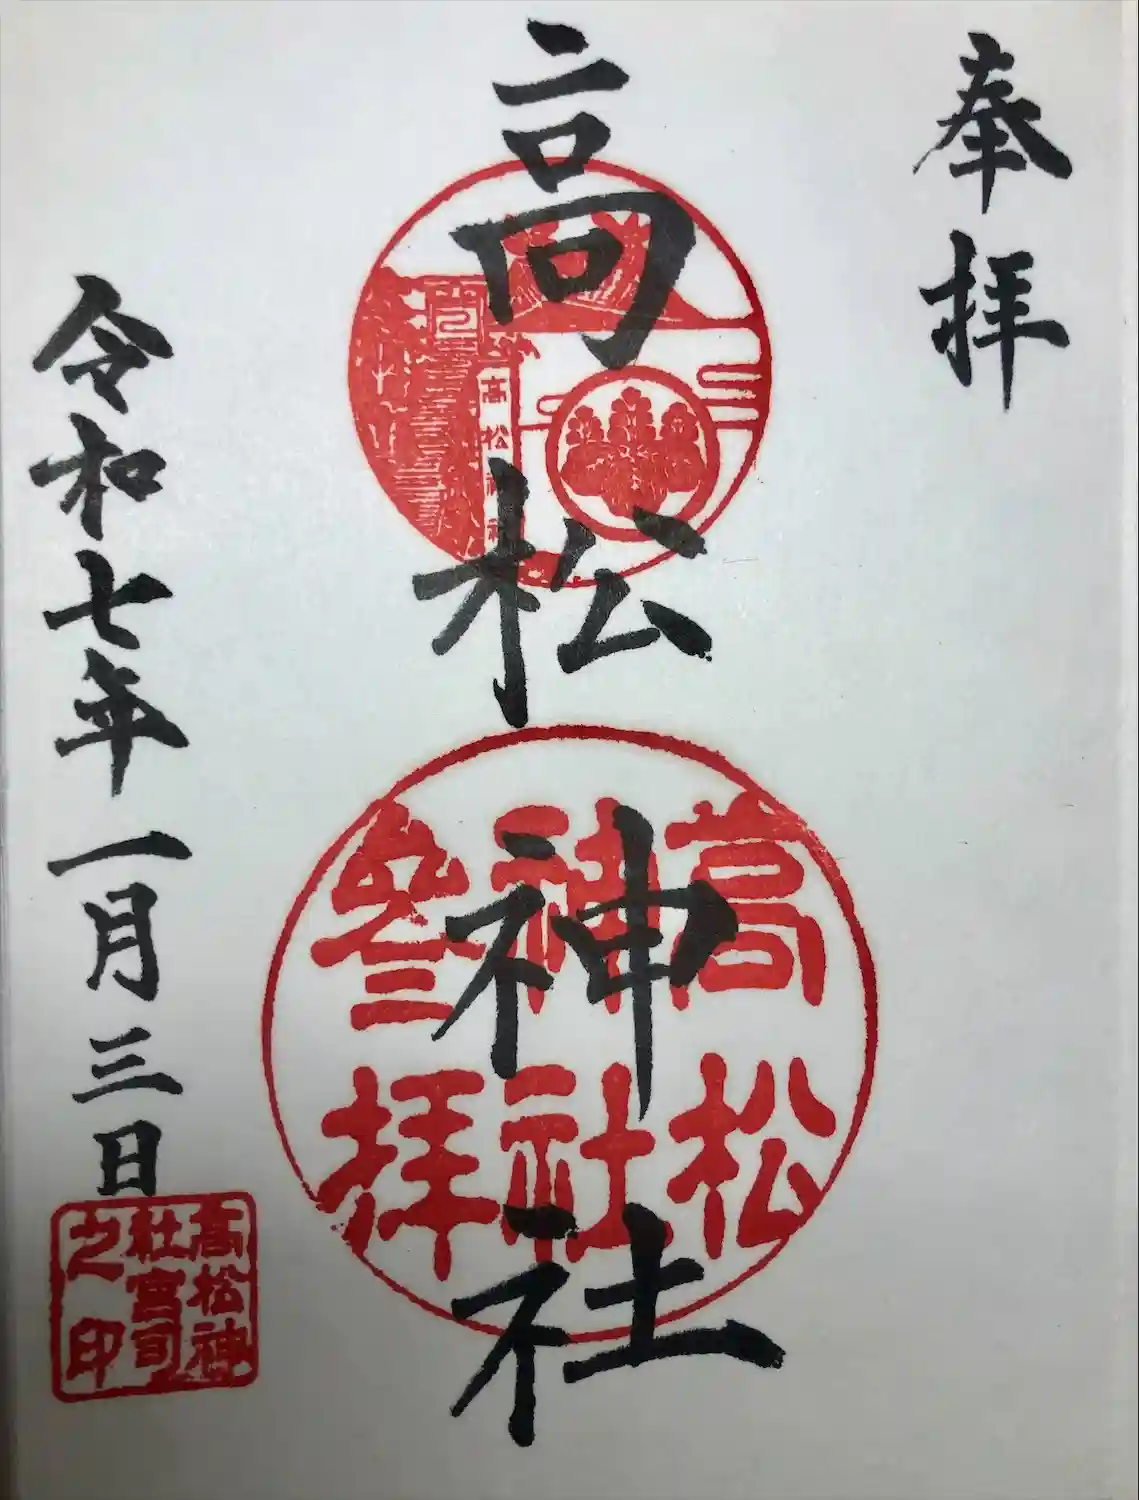 奉拝
高松神社
高松神社
高松
神社
参拝
令和七年一月三日
高松神
社宮司
之印